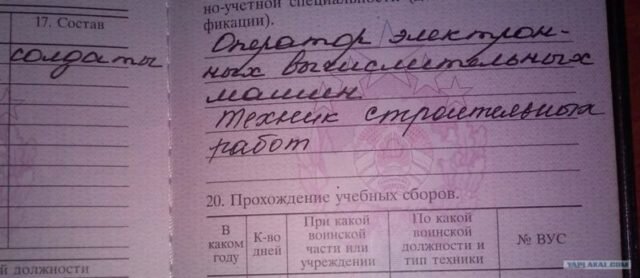 17. Состав
солдаты
й должности
но-учетной специальности (
фикации).
Оператор электрон-
ных вычислительных
машин
Техник строительных
работ
20. Прохождение учебных сборов.
В каком году
К-во дней
При какой воинской части или учреждении
По какой воинской должности и тип техники
№ ВУС
YAPLAKAL.COM